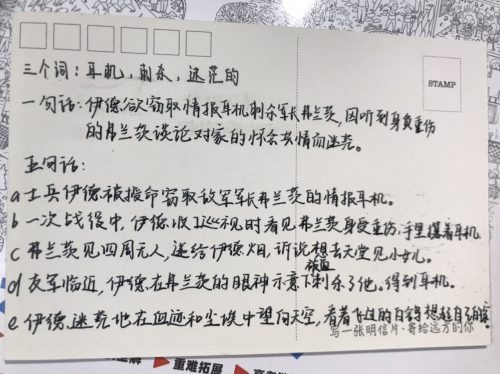 STAMP
三个词:耳机,刺杀,迷茫的
一句话:伊德欲窃取情报耳机刺杀军长弗兰茨,因听到身负重伤
的弗兰茨谈论对家的怀念共情而迷茫。
五句话:
a 士兵伊德被授命窃取敌军军长弗兰茨的情报耳机。
b 一次战役中,伊德收人巡视时看见弗兰茨身受重伤,手里攥着耳机
c 弗兰茨见四周无人,递给伊德烟,诉说想去天堂见小女儿。
d 友军临近,伊德在弗兰茨的眼神示意下刺杀了他。得到耳机。
e 伊德迷茫地在血迹和尘埃中望向天空,看着飞过的白鸽想起了
写一张明信片·寄给远方的你
重难拓展